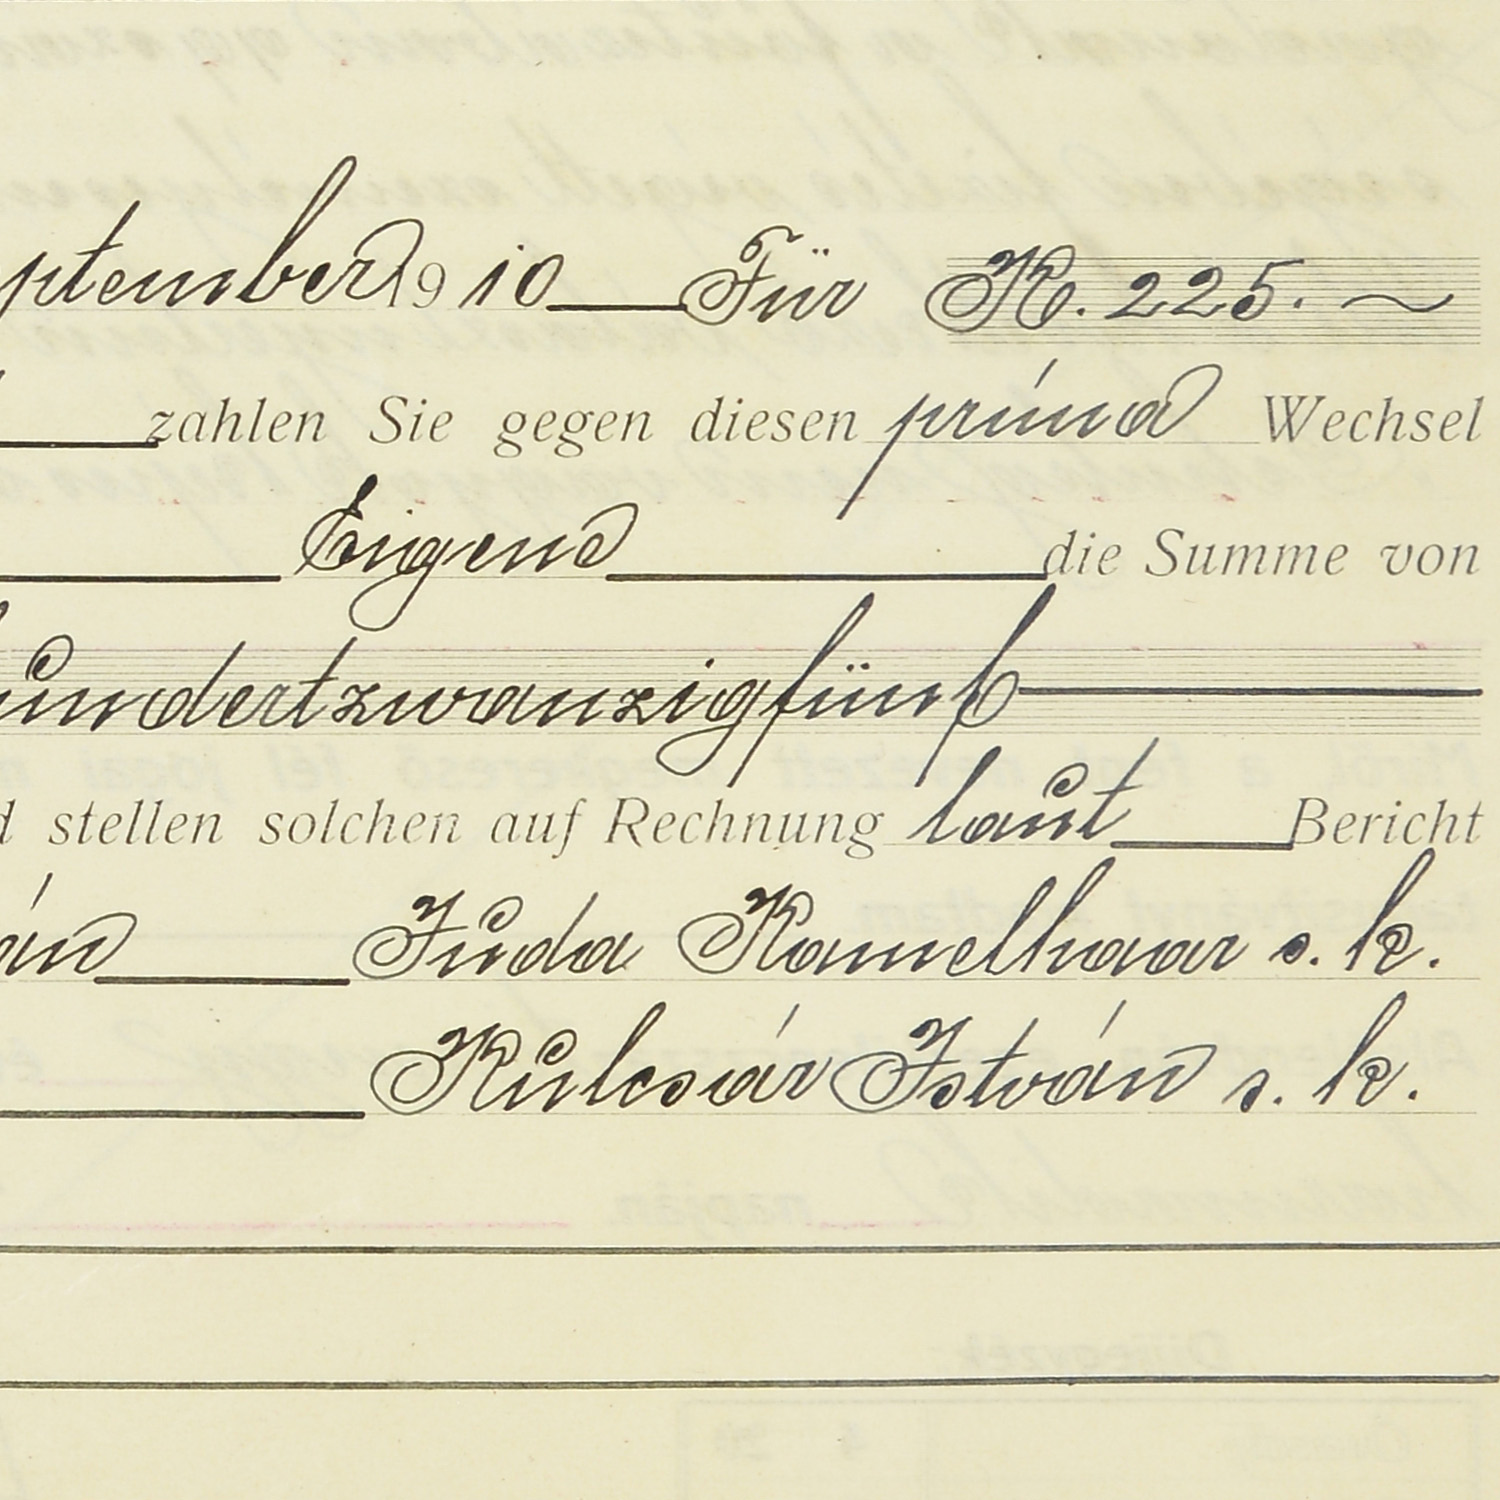 ptember 1910 Für K. 225.
zahlen Sie gegen diesen príma Wechsel
Eigene die Summe von
hundertzwanzigfünf
d stellen solchen auf Rechnung laut Bericht
án Juda Kamelhaar s. k.
Kulcsár István s. k.